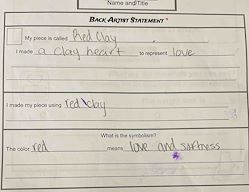 Name and/Title
BACK ARTIST STATEMENT *
My piece is called Red Clay
I made a clay heart to represent love
I made my piece using red clay
What is the symbolism?
The color red means love and softness